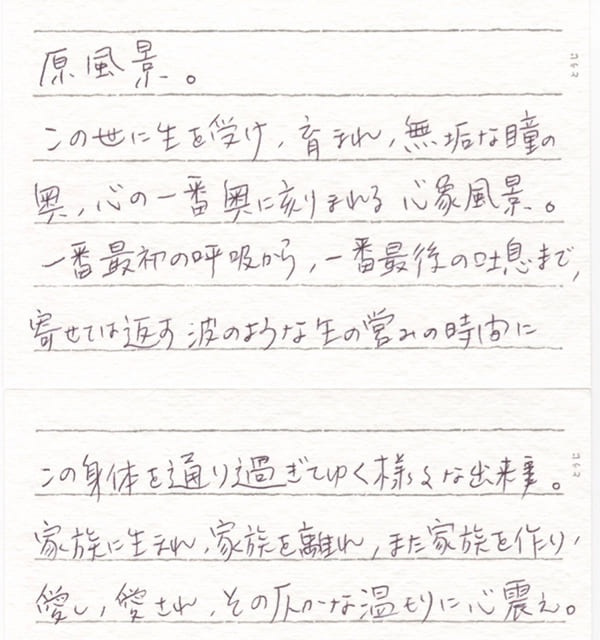 原風景。
この世に生を受け、育まれ、無垢な瞳の
奥、心の一番奥に刻りまれる心象風景。
一番最初の呼吸から、一番最後の吐息まで、
寄せては返す波のような生の営みの時間に
この身体を通り過ぎてゆく様々な出来事。
家族に生まれ、家族を離れ、また家族を作り、
愛し、愛され、その仄かな温もりに心震え。